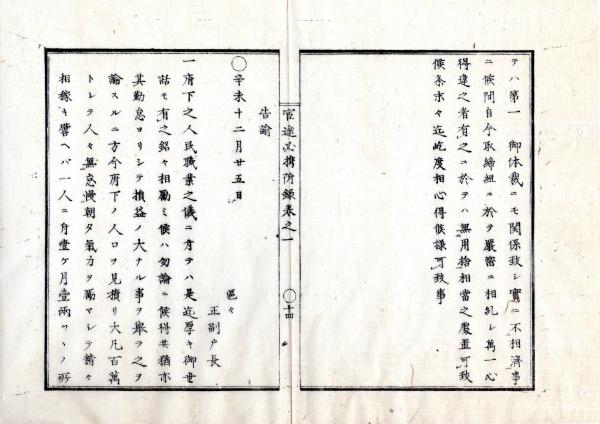 テハ第一　御体裁ニモ関係致シ実ニ不相済事
ニ候間自今取締組ニ於ヲ厳密ニ相糺シ萬一心
得違之者有之ニ於テハ無用捨相當之處置可致
候条末々迄屹度相心得候様可致事
官途必携附録巻之一
〇十四
告諭
〇辛未十二月廿五日
區々
正副戸長
一府下之人民職業之儀ニ付テハ是迄厚キ御世
話モ有之銘々相勵ミ候ハ勿論ニ候得共猶亦
其勤怠ヨリシテ損益ノ大ナル事ヲ挙ケ之ヲ
論スルニ方今府下ノ人口ヲ見積リ大凡百萬
トシテ人々無怠慢朝夕氣力ヲ勵マシテ諸々
相稼キ譬ヘバ一人ニ付壹ケ月壹兩ツヽノ所